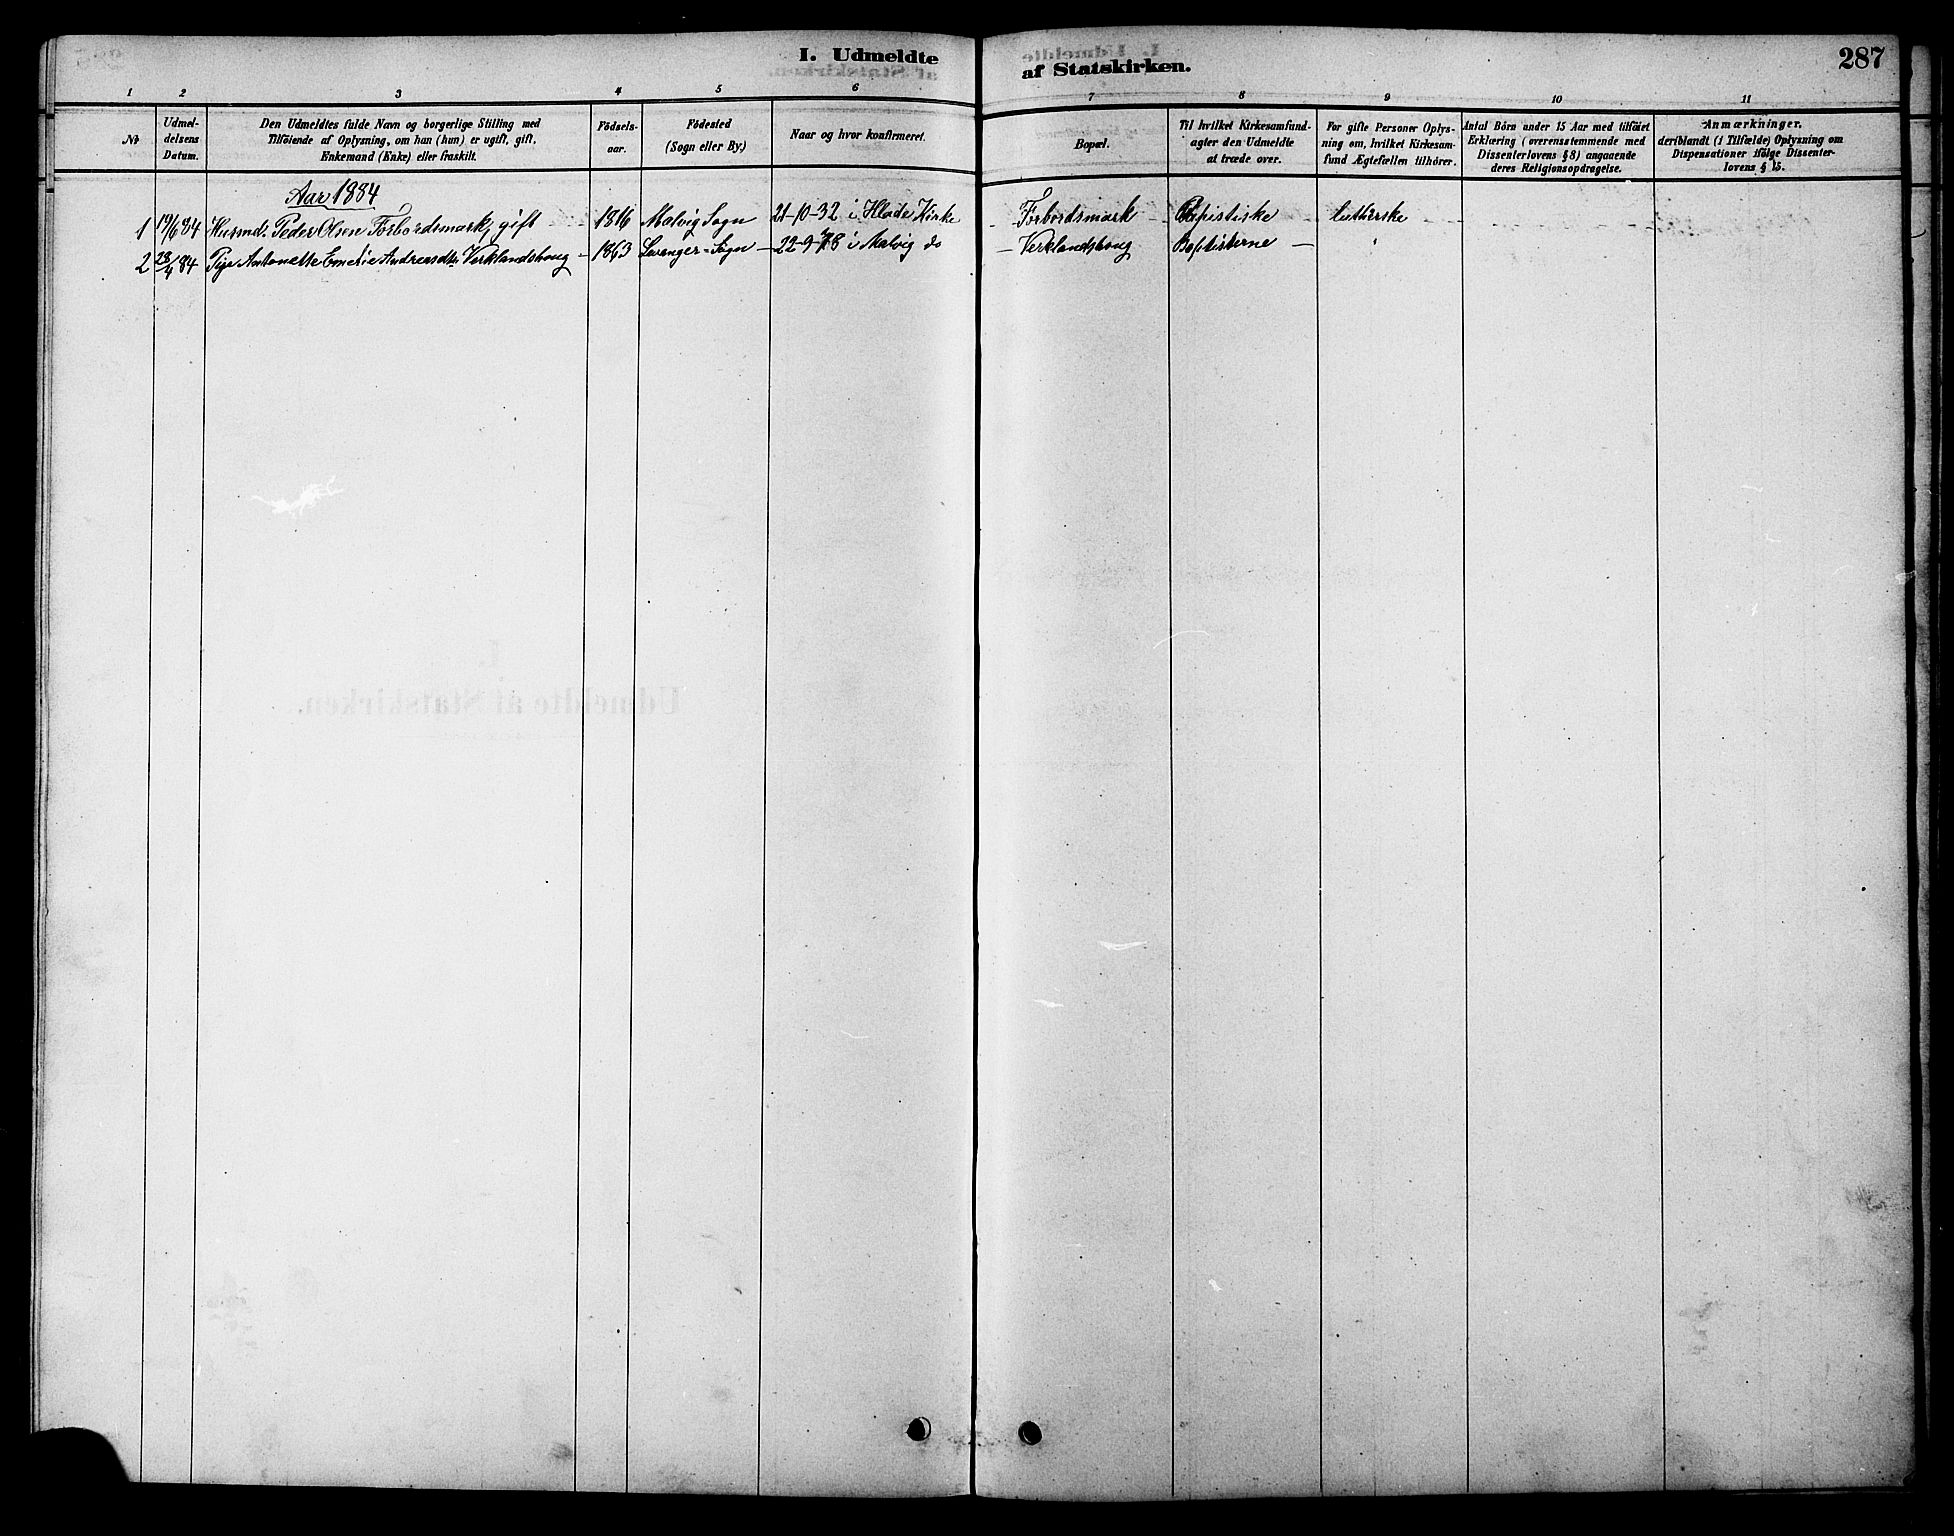 I. Udmeldte
af Statskirken.
287
1 2 3 4 5 6 7 8 9 10 11
No
Udmel-
delsens
Datum.
Den Udmeldtes fulde Navn og borgerlige Stilling med
Tilföiende af Oplysning, om han (hun) er ugift, gift,
Enkemand (Enke) eller fraskilt.
Födsels-
aar.
Födested
(Sogn eller By.)
Naar og hvor konfirmeret.
Bopæl.
Til hvilket Kirkesamfund-
agter den Udmeldte
at træde over.
For gifte Personer Oplys-
ning om, hvilket Kirkesam-
fund Ægtefællen tilhörer.
Antal Börn under 15 Aar med tilföiet
Erklæring (overensstemmende med
Dissenterlovens § 8) angaaende
deres Religionsopdragelse.
Anmærkninger,
deriblandt (i Tilfælde) Oplysning om
Dispensationer ifölge Dissenter-
lovens § 15.
Aar 1884
1 19/6 84 Husmd. Peder Olsen Forbordsmark, gift 1816 Malvig Sogn 21-10-32 i Hlade Kirke Forbordsmark Baptistiske lutherske
2 23/4 84 Pige Antonette Emelie Andreasdtr. Verklandshoug 1863 Levanger Sogn 22-9-78 i Malvig do Verklandshoug Baptisterne